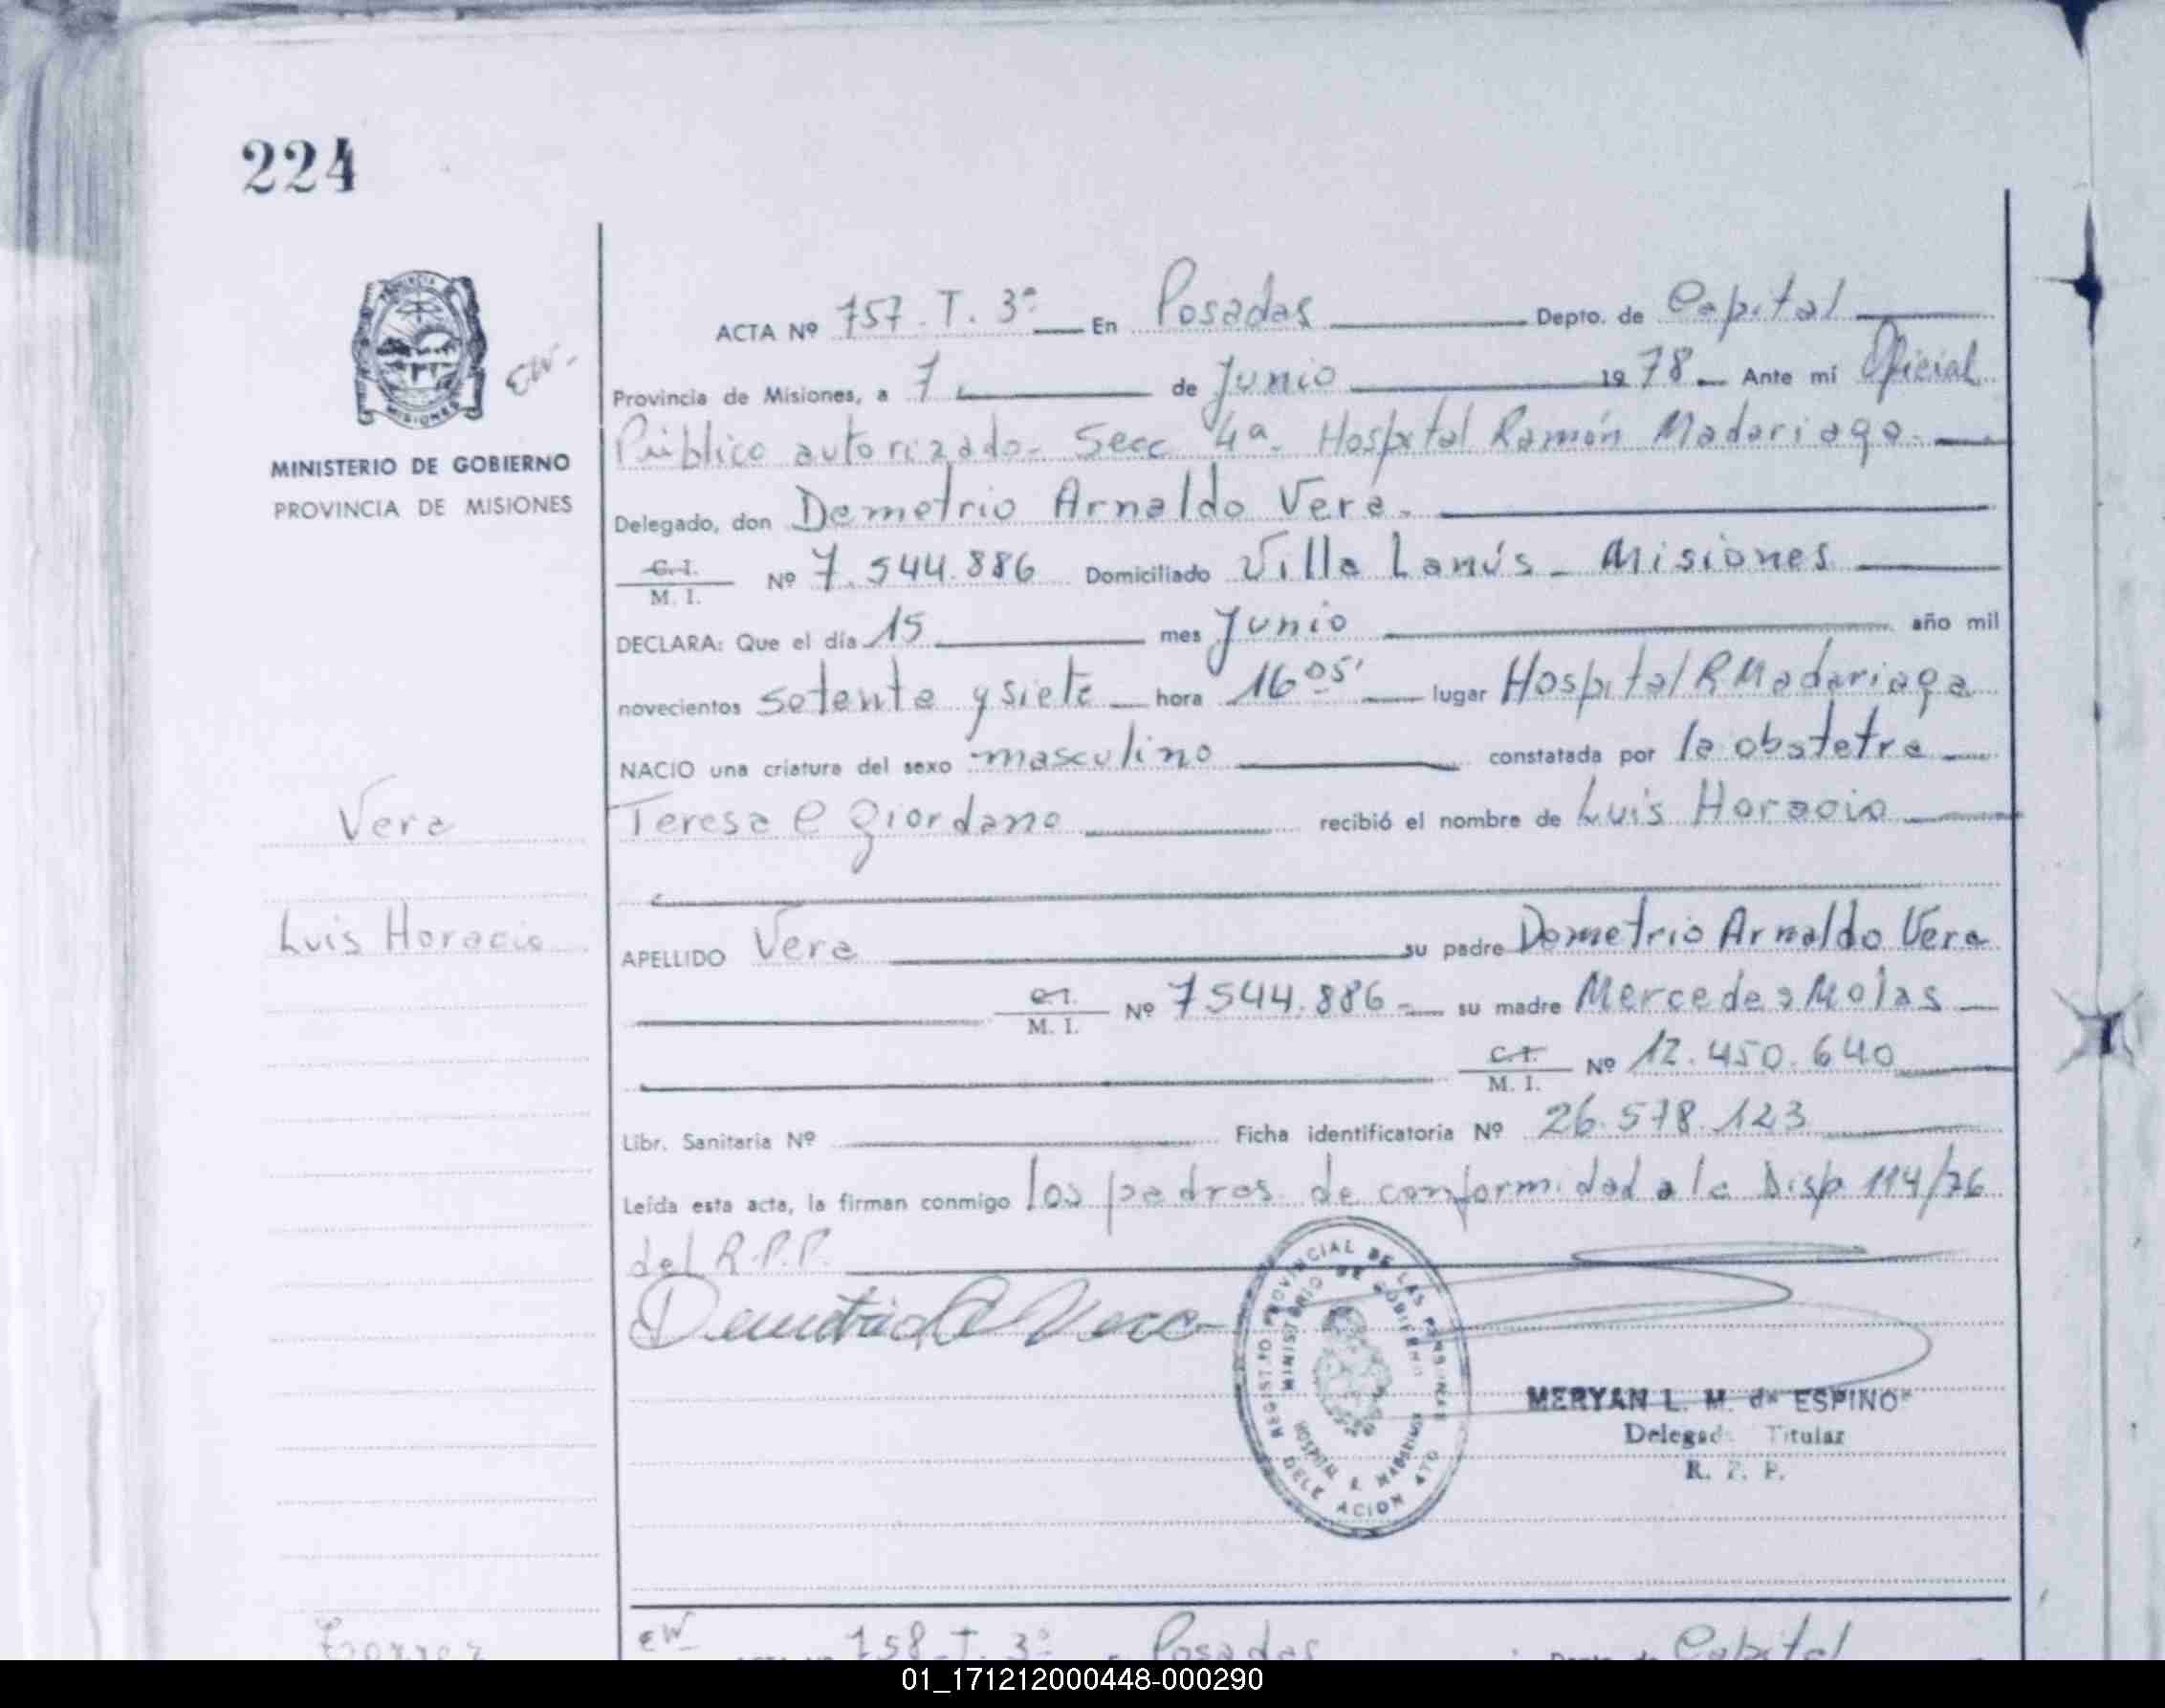 224
ACTA Nº 757. T. 3ª En Posadas Depto. de Capital
Provincia de Misiones, a 7 de Junio 1978 Ante mí Oficial
Público autorizado- Secc 4ª- Hospital Ramón Madariaga-
MINISTERIO DE GOBIERNO
PROVINCIA DE MISIONES
Delegado, don Demetrio Arnaldo Vera.
C. I. M. I. Nº 7.544.886 Domiciliado Villa Lanús - Misiones
DECLARA: Que el día 15 mes Junio año mil
novecientos setenta y siete hora 16 05' lugar Hospital R Madariaga
NACIO una criatura del sexo masculino constatada por la obstetra
Vera
Teresa e Giordano recibió el nombre de Luis Horacio
Luis Horacio
APELLIDO Vera su padre Demetrio Arnaldo Vera
C. I. M. I. Nº 7544.886- su madre Mercedes Molas
C. I. M. I. Nº 12.450.640
Libr. Sanitaria Nº Ficha identificatoria Nº 26.578.123
Leída esta acta, la firman conmigo los padres de conformidad a la Disp 114/76
del R.P.P.
Demetrio A Vera
REGISTRO PROVINCIAL DE LAS PERSONAS
MINISTERIO DE GOBIERNO
HOSPITAL R. MADARIAGA
DELEGACION 4TO
MERYAN L. M. de ESPINO
Delegad Titular
R. P. P.
EW 758 T. 3ª Posadas Capital
01_171212000448-000290